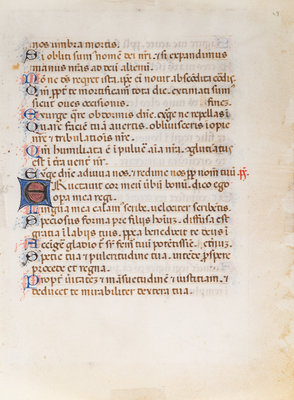 nos umbra mortis.
Si obliti sum' nomē dei nr̄i · & si expandimus
manus nr̄as ad deū alienū.
Nonne ds̄ reqret ista · ip̄e ei novit abscōdita cōdis.
Qm̄ ppt̄ te mortificam tota die · exstimati sum'
sicut oves occisionis. finez.
Exurge q̄re obdormis dn̄e · exurge & ne repellas ī
Quare faciē tuā avertis · oblivisceris inopie
nr̄e & tribulationis nr̄e.
Qm̄ humiliata ē ī pulve aīa nr̄a · gglutinat'
est ī tr̄a vent' nr̄.
Exurge dn̄e adiuva nos · & redime nos pp nom̄ tuū
Eructavit cor meū ūbū bonū · dico ego
opa mea regi.
Lingua mea calam' scribe · velocit̄ scribētis.
Speciosus forma pre filiis hoīuz · diffusa est
gratia ī labiis tuis · ppt̄ea benedixit te deus ī
Accīge gladio tuo sr̄ femī tuū potētissīe. et̄nuz.
Specie tua & pulcritudine tua · intēde prospere
procede et regna.
Propt̄ vitatez & mansuetudinē & iustitiam · &
deducet te mirabiliter dextera tua.